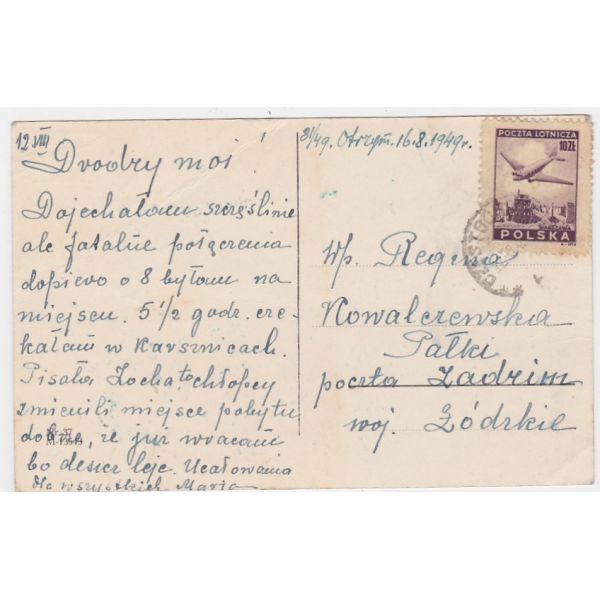 12 VIII
Drodzy moi!
Dojechałam szczęśliwie
ale fatalne połączenia
dopiero o 8 byłam na
miejscu. 5 1/2 godz. cze-
kałam w Karsznicach.
Pisała Zocha, to chłopcy
zmienili miejsce pobytu
dobrze, że już wracam
bo deszcz leje. Ucałowania
dla wszystkich Maria
81/49. Otrzym. 16.8.1949r.
POCZTA LOTNICZA
10 ZŁ
POLSKA
Wp. Regina
Kowalczewska
Pałki
poczta Zadzim
woj. Łódzkie